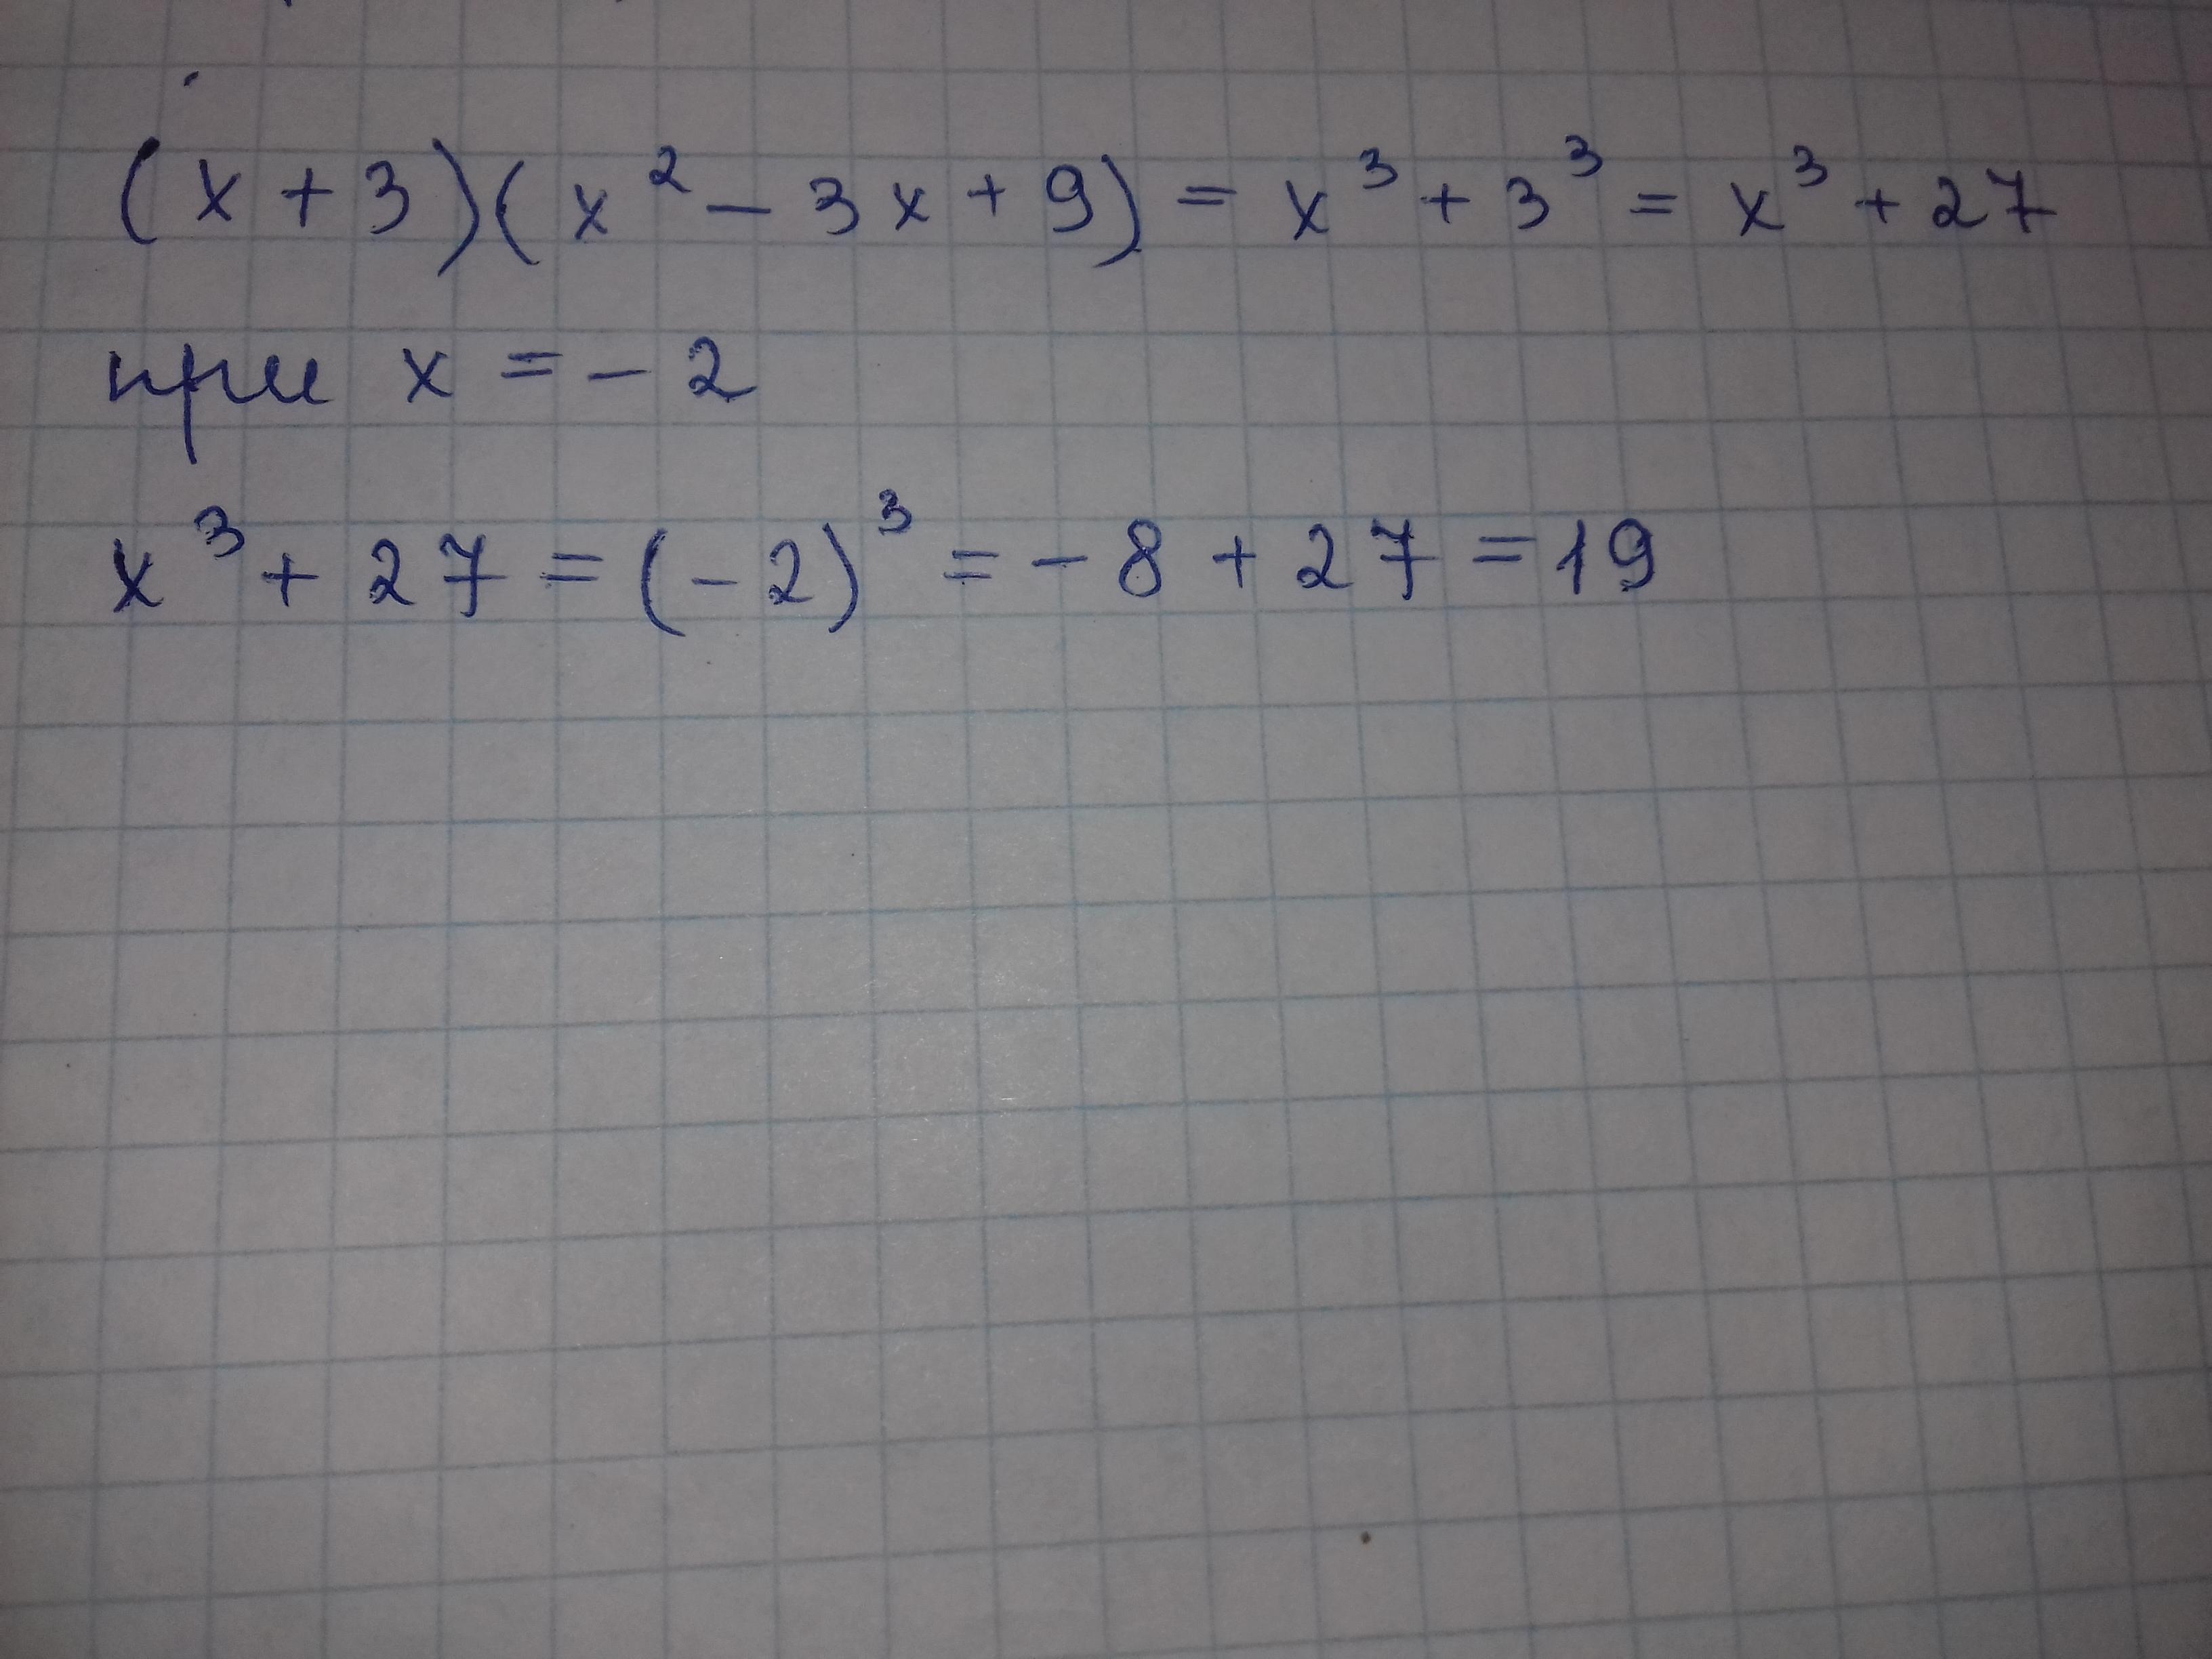 (x + 3)(x² - 3x + 9) = x³ + 3³ = x³ + 27
при x = - 2
x³ + 27 = (- 2)³ = - 8 + 27 = 19